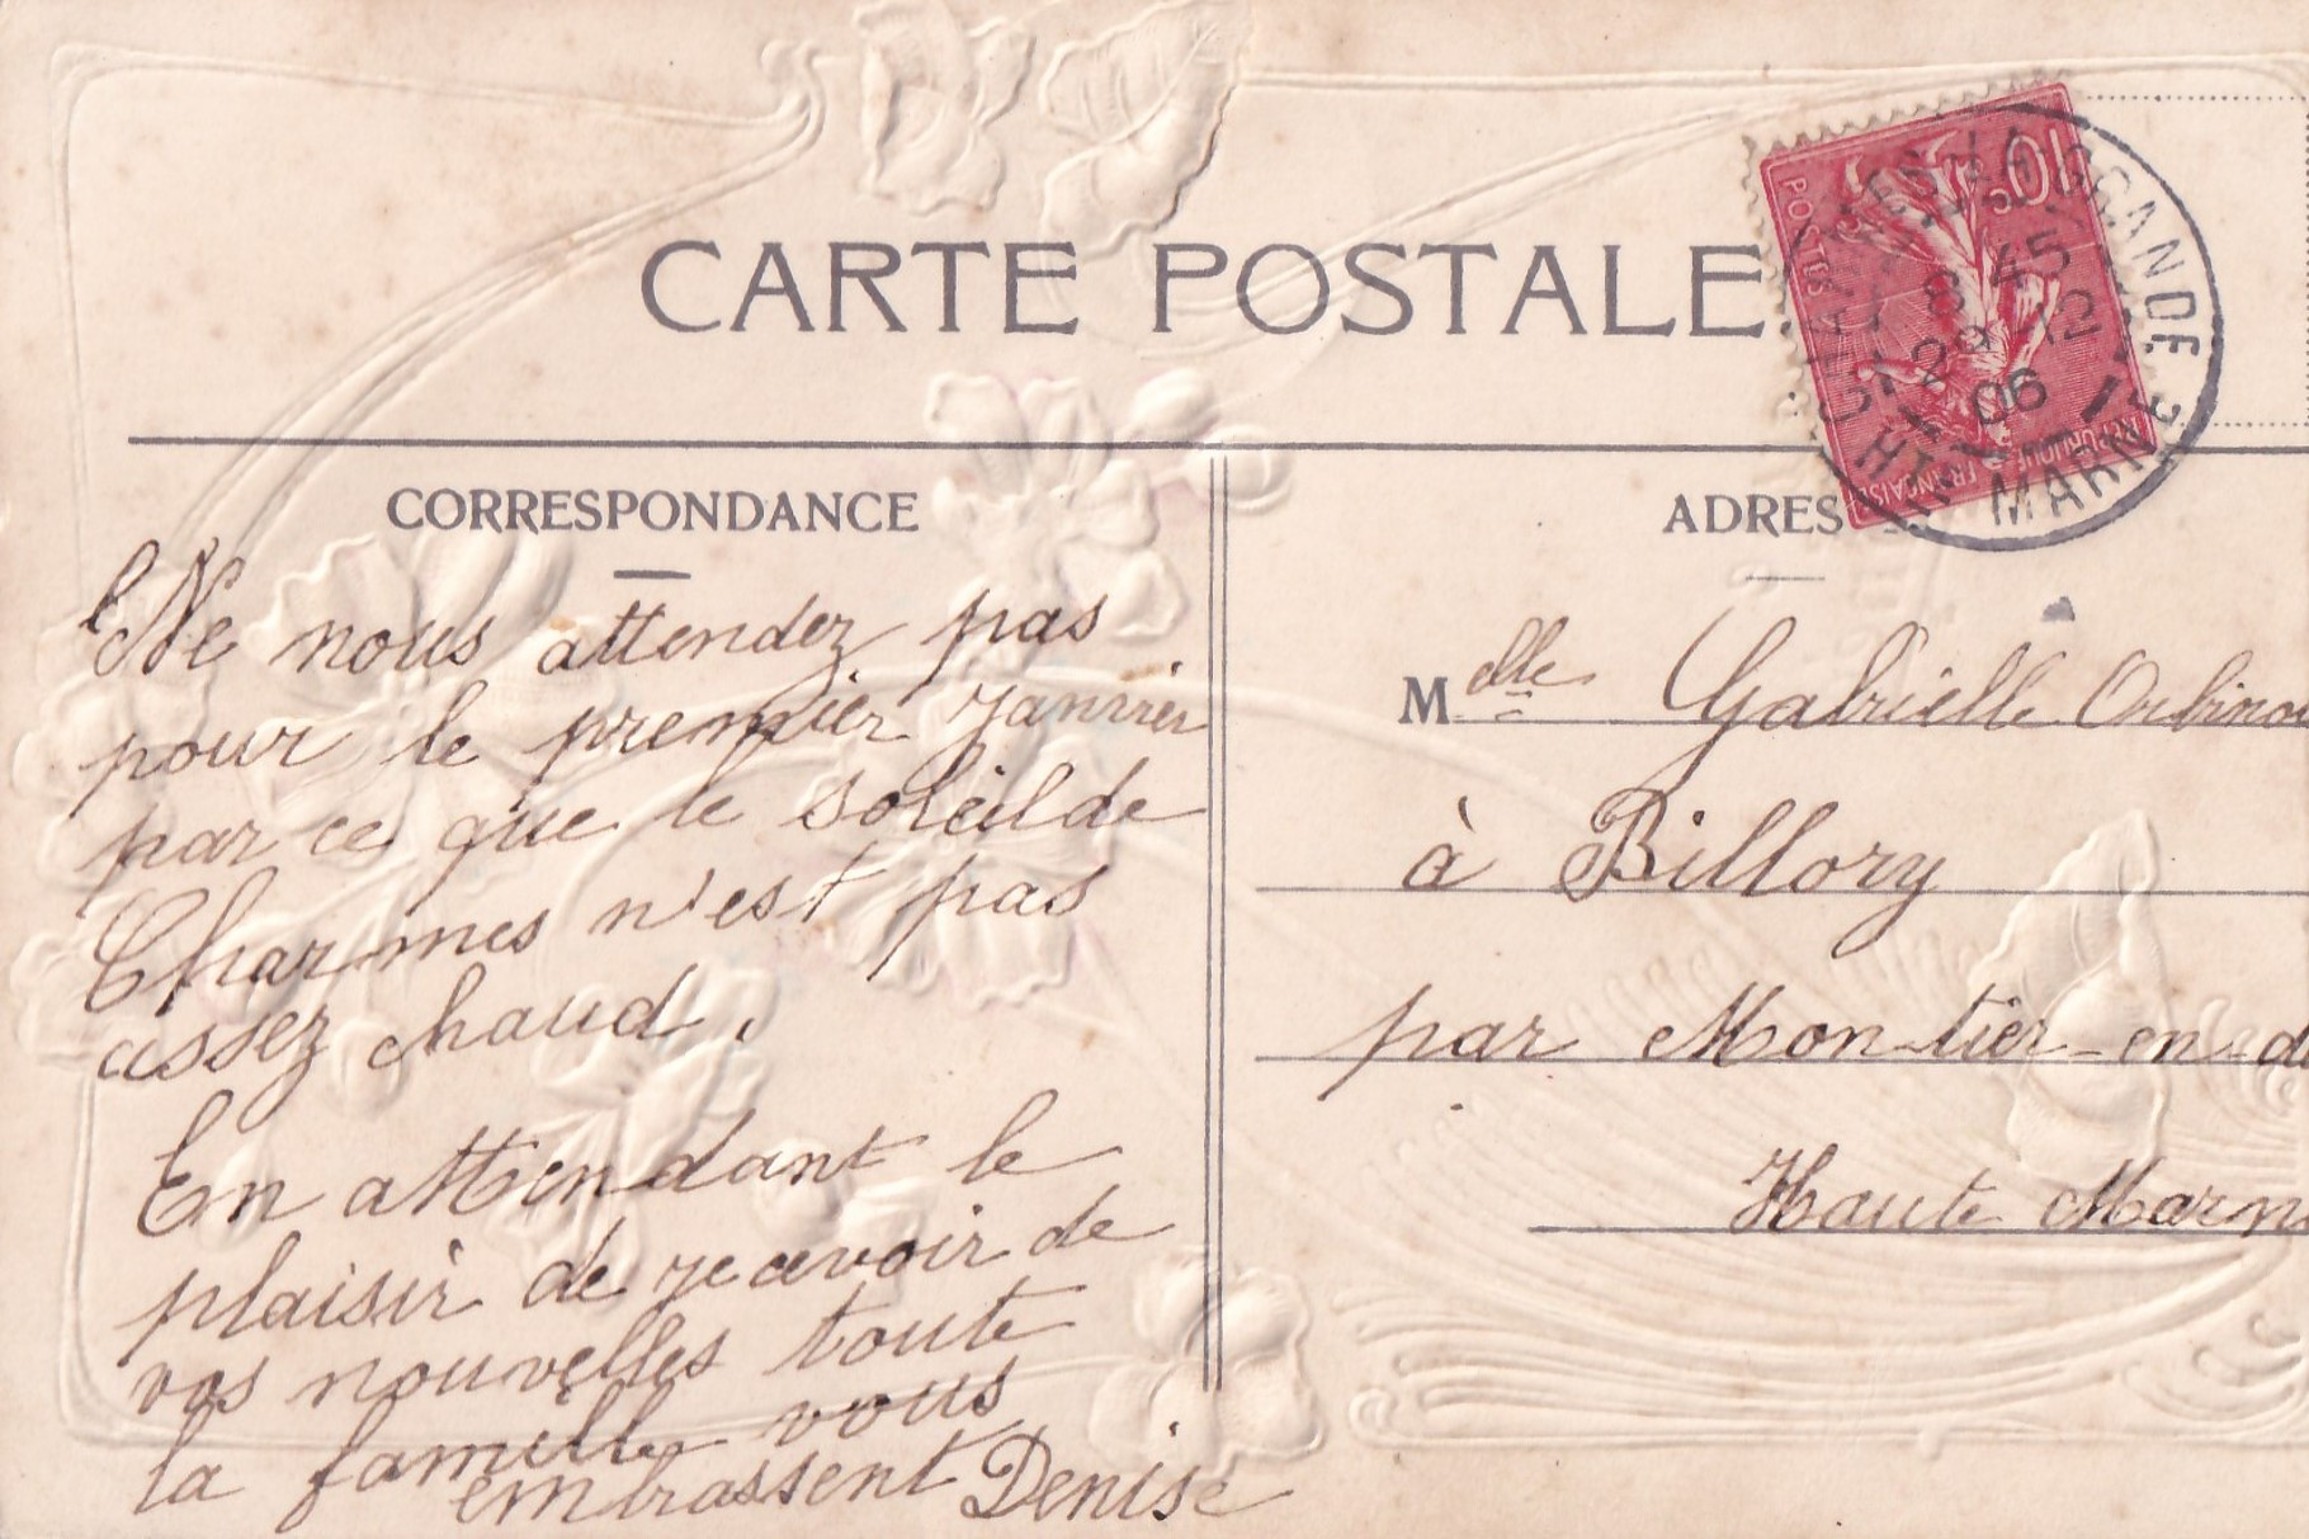 CARTE POSTALE.
10c
POSTES
REPUBLIQUE FRANÇAISE
CHARMES-LA-GRANDE
8 45
29 -12
06
HTE MARNE
CORRESPONDANCE
Ne nous attendez pas
pour le premier Janvier
par ce que le soleil de
Charmes n'est pas
assez chaud.
En attendant le
plaisir de recevoir de
vos nouvelles toute
la famille vous
embrassent Denise
ADRES
Melle Gabrielle
à Billory
par Montier-en-de
Haute Marn